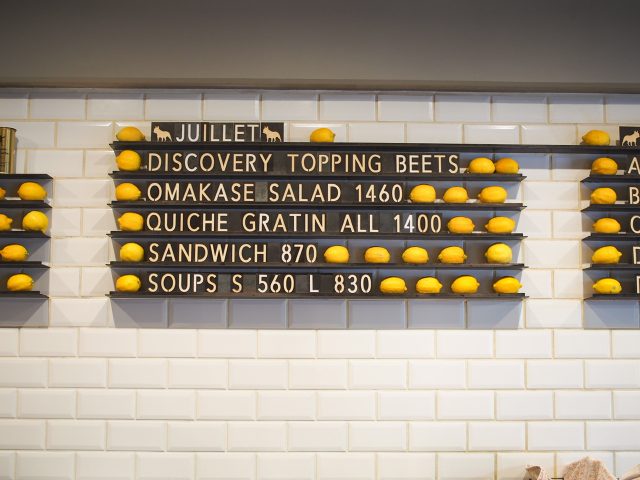 JUILLET
DISCOVERY TOPPING BEETS
OMAKASE SALAD 1460
QUICHE GRATIN ALL 1400
SANDWICH 870
SOUPS S 560 L 830